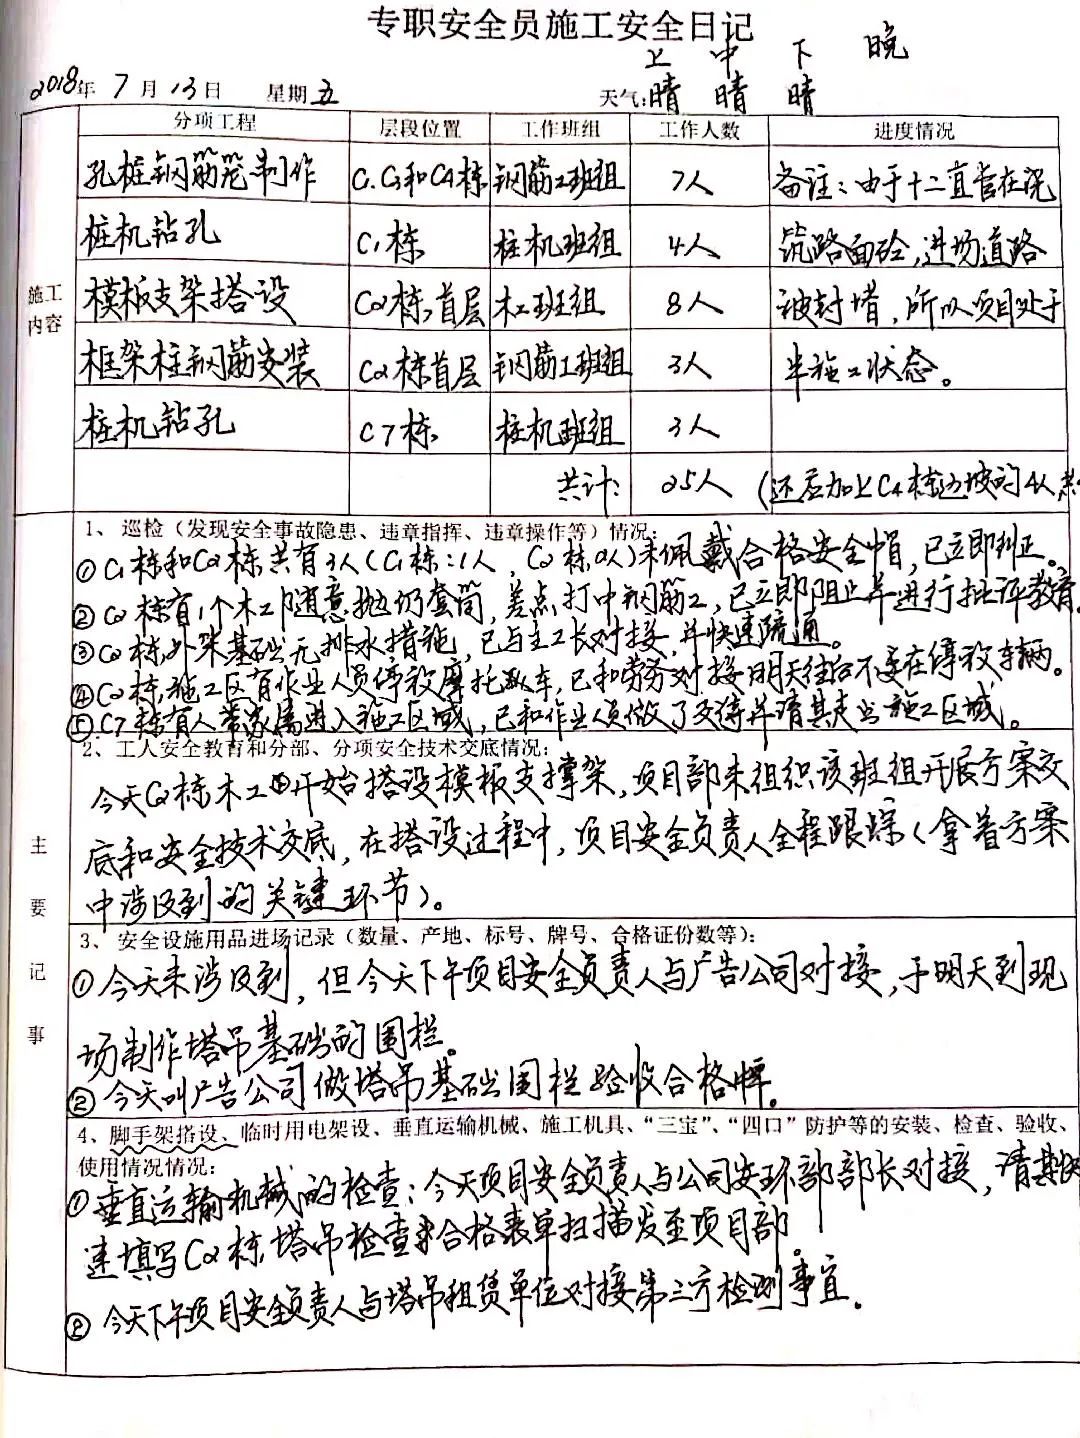 专职安全员施工安全日记
上 中 下 晚
2018年 7月 13日 星期五 天气:晴 晴 晴
分项工程 层段位置 工作班组 工作人数 进度情况
孔桩钢筋笼制作 C1.C3和C4栋 钢筋工班组 7人 备注:由于十二直管在浇
桩机钻孔 C1栋 桩机班组 4人 筑路面砼,进场道路
模板支架搭设 C2栋,首层 木工班组 8人 被封堵,所以项目处于
框架柱钢筋安装 C2栋首层 钢筋工班组 3人 半施工状态。
桩机钻孔 C7栋 桩机班组 3人
共计: 25人 (还应加上C4栋边坡的4人
施工
内容
1、巡检(发现安全事故隐患、违章指挥、违章操作等)情况:
①C1栋和C2栋共有3人(C1栋:1人,C2栋2人)未佩戴合格安全帽,已立即纠正。
②C2栋有1个木工随意抛扔套筒,差点打中钢筋工,已立即阻止并进行批评教育。
③C2栋,外架基础无排水措施,已与主工长对接,并快速疏通。
④C2栋,施工区有作业人员停放摩托车,已和劳务对接明天往后不要在停放车辆。
⑤C7栋有人带家属进入施工区域,已和作业人员做了交待并请其走出施工区域。
2、工人安全教育和分部、分项安全技术交底情况:
今天C2栋木工开始搭设模板支撑架,项目部未组织该班组开展方案交
底和安全技术交底,在搭设过程中,项目安全负责人全程跟踪(拿着方案
中涉及到的关键环节)。
主
要
记
事
3、安全设施用品进场记录(数量、产地、标号、牌号、合格证份数等):
①今天未涉及到,但今天下午项目安全负责人与广告公司对接,于明天到现
场制作塔吊基础的围栏。
②今天叫广告公司做塔吊基础围栏验收合格牌。
4、脚手架搭设、临时用电架设、垂直运输机械、施工机具、“三宝”、“四口”防护等的安装、检查、验收、
使用情况情况:
①垂直运输机械的检查:今天项目安全负责人与公司安环部部长对接,请其快
速填写C2栋塔吊检查合格表单扫描发至项目部。
②今天下午项目安全负责人与塔吊租赁单位对接第三方检测事宜。